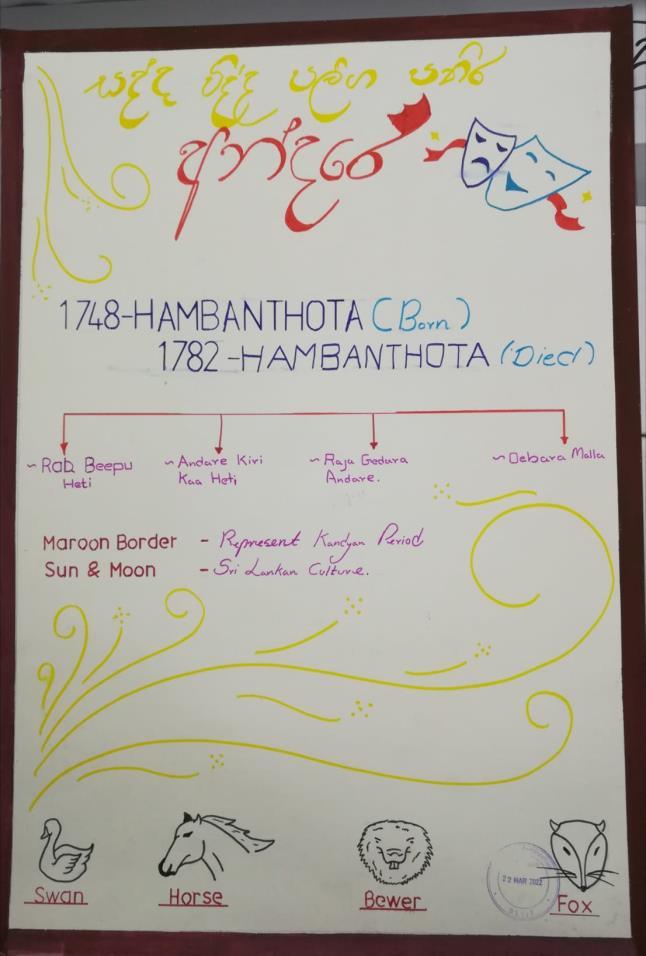 සද්ද විද්ද පලිඟ පතිර
අන්දරේ
1748-HAMBANTHOTA (Born)
1782-HAMBANTHOTA (Died)
~Rab Beepu Heti
~Andare Kiri Kaa Heti
~Raja Gedara Andare.
~Debara Malla
Maroon Border - Represent Kandyan Period
Sun & Moon - Sri Lankan Culture.
Swan
Horse
Bewer
Fox
22 MAR 2022